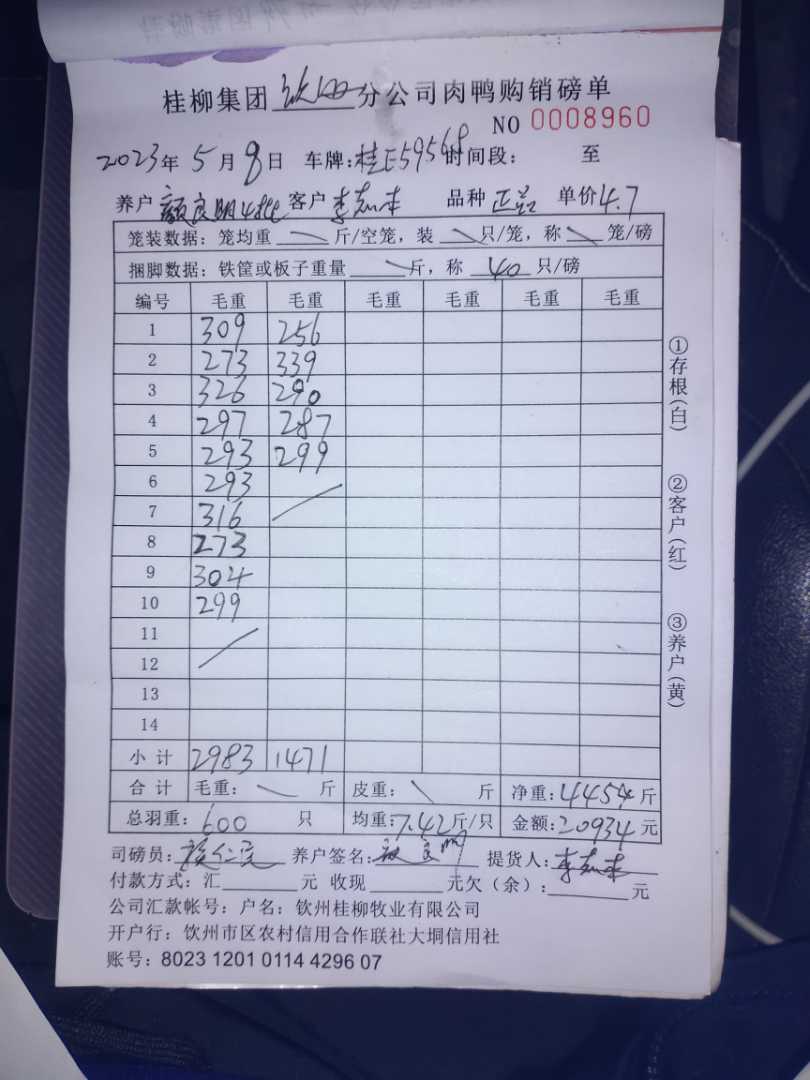 桂柳集团 钦州 分公司肉鸭购销磅单
NO 0008960
2023年 5月 8日 车牌:桂E59568 时间段: 至
养户 颜良明4批 客户 李志丰 品种 正品 单价4.7
笼装数据: 笼均重 斤/空笼, 装 只/笼, 称 笼/磅
捆脚数据: 铁筐或板子重量 斤, 称 40 只/磅
编号 毛重 毛重 毛重 毛重 毛重 毛重
1 309 256
2 273 339
3 326 290
4 297 287
5 293 299
6 293
7 316
8 273
9 304
10 299
11
12
13
14
小计 2983 1471
合计 毛重: 斤 皮重: 斤 净重:4454斤
总羽重: 600 只 均重:7.42斤/只 金额:20934元
司磅员: 养户签名: 颜良明 提货人: 李志丰
付款方式: 汇 元 收现 元欠(余): 元
公司汇款帐号: 户名: 钦州桂柳牧业有限公司
开户行: 钦州市区农村信用合作联社大垌信用社
账号: 8023 1201 0114 4296 07
①存根(白)
②客户(红)
③养户(黄)